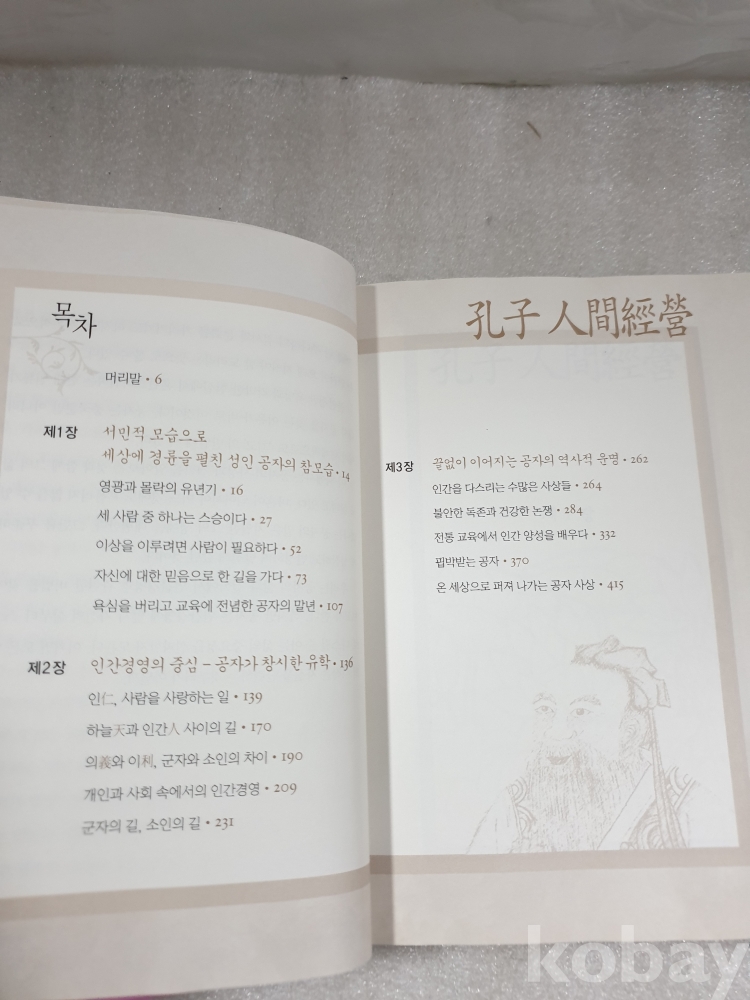 목차
머리말 • 6
제1장 서민적 모습으로
세상에 경륜을 펼친 성인 공자의 참모습 • 14
영광과 몰락의 유년기 • 16
세 사람 중 하나는 스승이다 • 27
이상을 이루려면 사람이 필요하다 • 52
자신에 대한 믿음으로 한 길을 가다 • 73
욕심을 버리고 교육에 전념한 공자의 말년 • 107
제2장 인간경영의 중심 – 공자가 창시한 유학 • 136
인仁, 사람을 사랑하는 일 • 139
하늘天과 인간人 사이의 길 • 170
의義와 이利, 군자와 소인의 차이 • 190
개인과 사회 속에서의 인간경영 • 209
군자의 길, 소인의 길 • 231
孔子 人間經營
제3장 끝없이 이어지는 공자의 역사적 운명 • 262
인간을 다스리는 수많은 사상들 • 264
불안한 독존과 건강한 논쟁 • 284
전통 교육에서 인간 양성을 배우다 • 332
핍박받는 공자 • 370
온 세상으로 퍼져 나가는 공자 사상 • 415
kobay